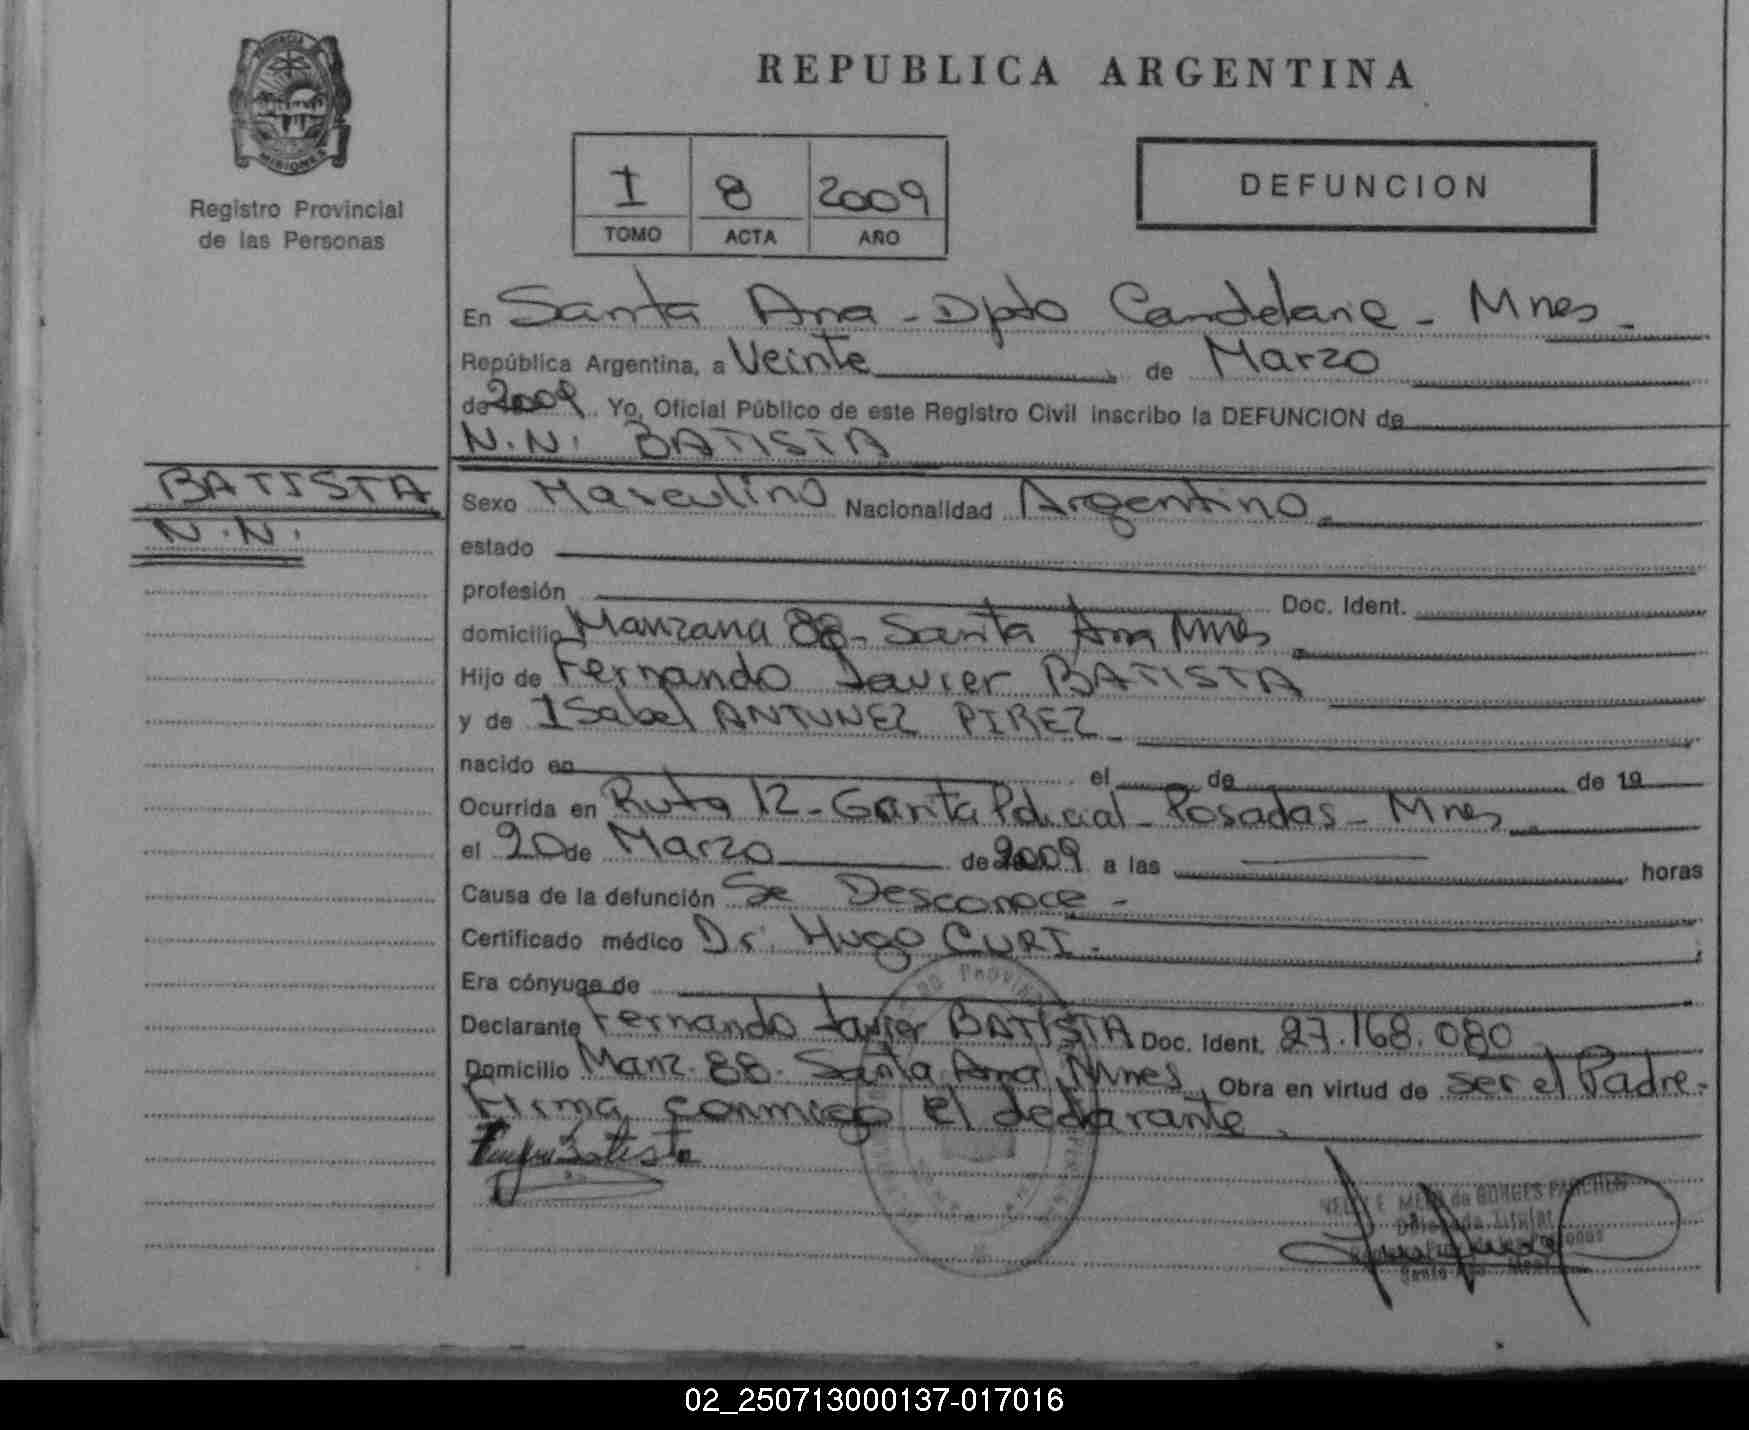 PROVINCIA
MISIONES
Registro Provincial
de las Personas
REPUBLICA ARGENTINA
I 8 2009
TOMO ACTA AÑO
DEFUNCION
En Santa Ana - Dpto Candelaria - Mnes -
República Argentina, a Veinte de Marzo
de 2009 Yo, Oficial Público de este Registro Civil inscribo la DEFUNCION de
N.N. BATISTA
BATISTA
N.N.
Sexo Masculino Nacionalidad Argentino
estado
profesión Doc. Ident.
domicilio Manzana 88 - Santa Ana Mnes
Hijo de Fernando Javier BATISTA
y de Isabel ANTUNEZ PIREZ
nacido en el de de 19
Ocurrida en Ruta 12 - Garita Policial - Posadas - Mnes
el 20 de Marzo de 2009 a las horas
Causa de la defunción Se Desconoce -
Certificado médico Dr. Hugo CURI.
Era cónyuge de
Declarante Fernando Javier BATISTA Doc. Ident. 27.168.080
Domicilio Manz. 88 - Santa Ana Mnes Obra en virtud de ser el Padre.
Firma conmigo el declarante.
Batista
E. de BORGES
Titular
02_250713000137-017016